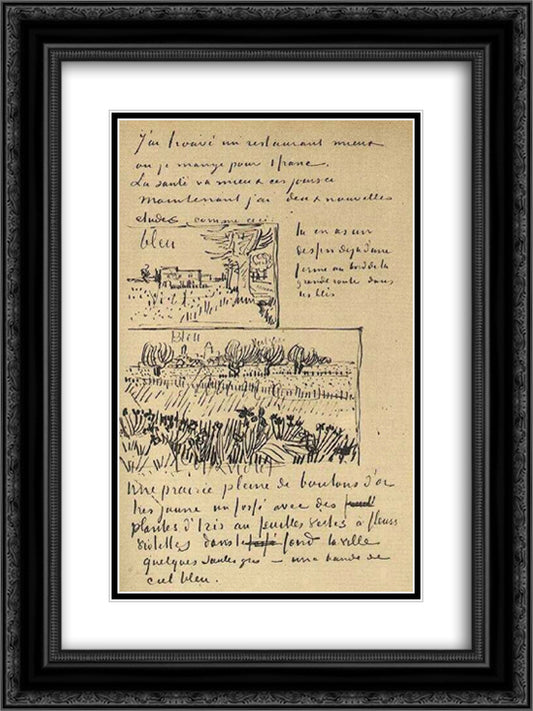 J'ai trouvé un restaurant mieux
ou je mange pour 1 franc.
La santé va mieux ces jours ci
Maintenant j'ai deux nouvelles
etudes comme ceci
bleu
tu en as un
dessin deja d'une
ferme au bord de la
grande route dans
les blés
Bleu
Violet
Une prairie pleine de boutons d'or
tres jaune un fossé avec des
plantes d'Iris au feuilles vertes à fleurs
violettes dans le fond la ville
quelques saules gris – une bande de
ciel bleu.